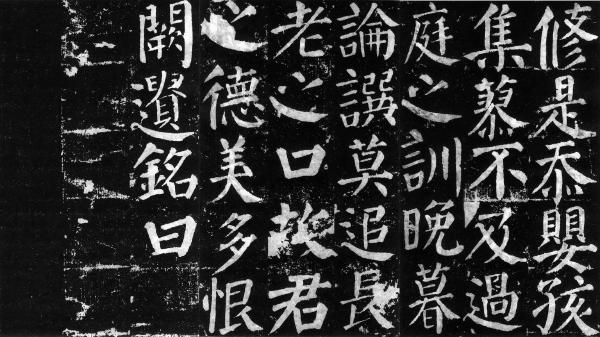 修是忝嬰孩
集蓼不及過
庭之訓晚暮
論譔莫追長
老之口故君
之德美多恨
闕遺銘曰